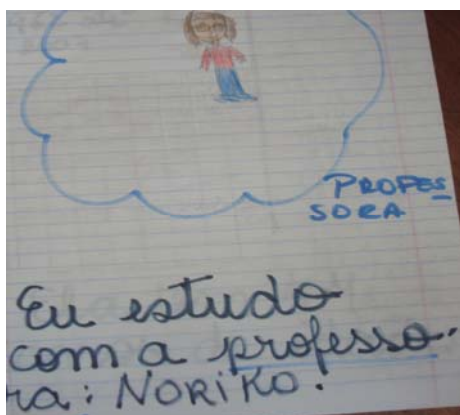 PROFES
SORA
Eu estudo
com a professo-
ra: NORIKO.